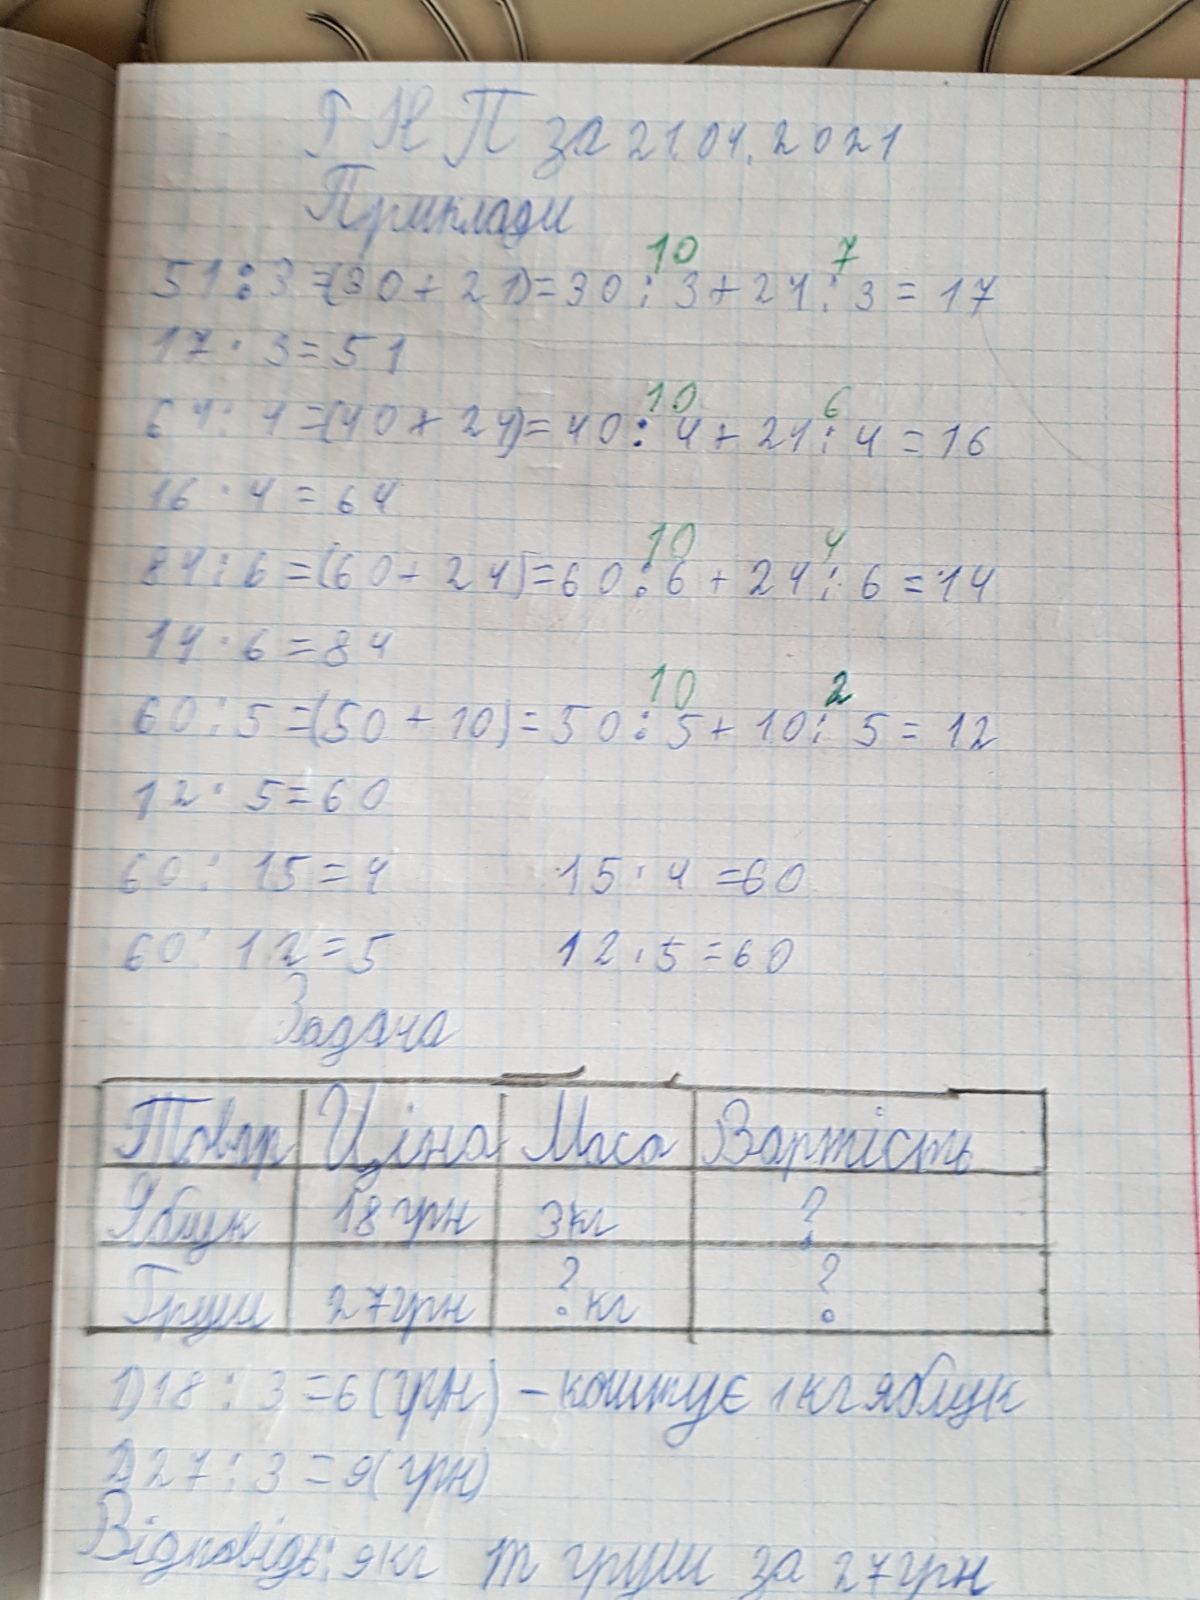 ГНП за 21.04.2021
Приклади
51:3=(30+21)=30:3+21:3=17
10 7
17·3=51
64:4=(40+24)=40:4+24:4=16
10 6
16·4=64
84:6=(60+24)=60:6+24:6=14
10 4
14·6=84
60:5=(50+10)=50:5+10:5=12
10 2
12·5=60
60:15=4 15·4=60
60:12=5 12·5=60
Задача
Товар Ціна Маса Вартість
Яблук 18 грн 3 кг ?
Груш 27 грн ? кг ?
1) 18:3=6(грн) – коштує 1 кг яблук
2) 27:3=9(грн)
Відповідь: 9 кг груш за 27 грн